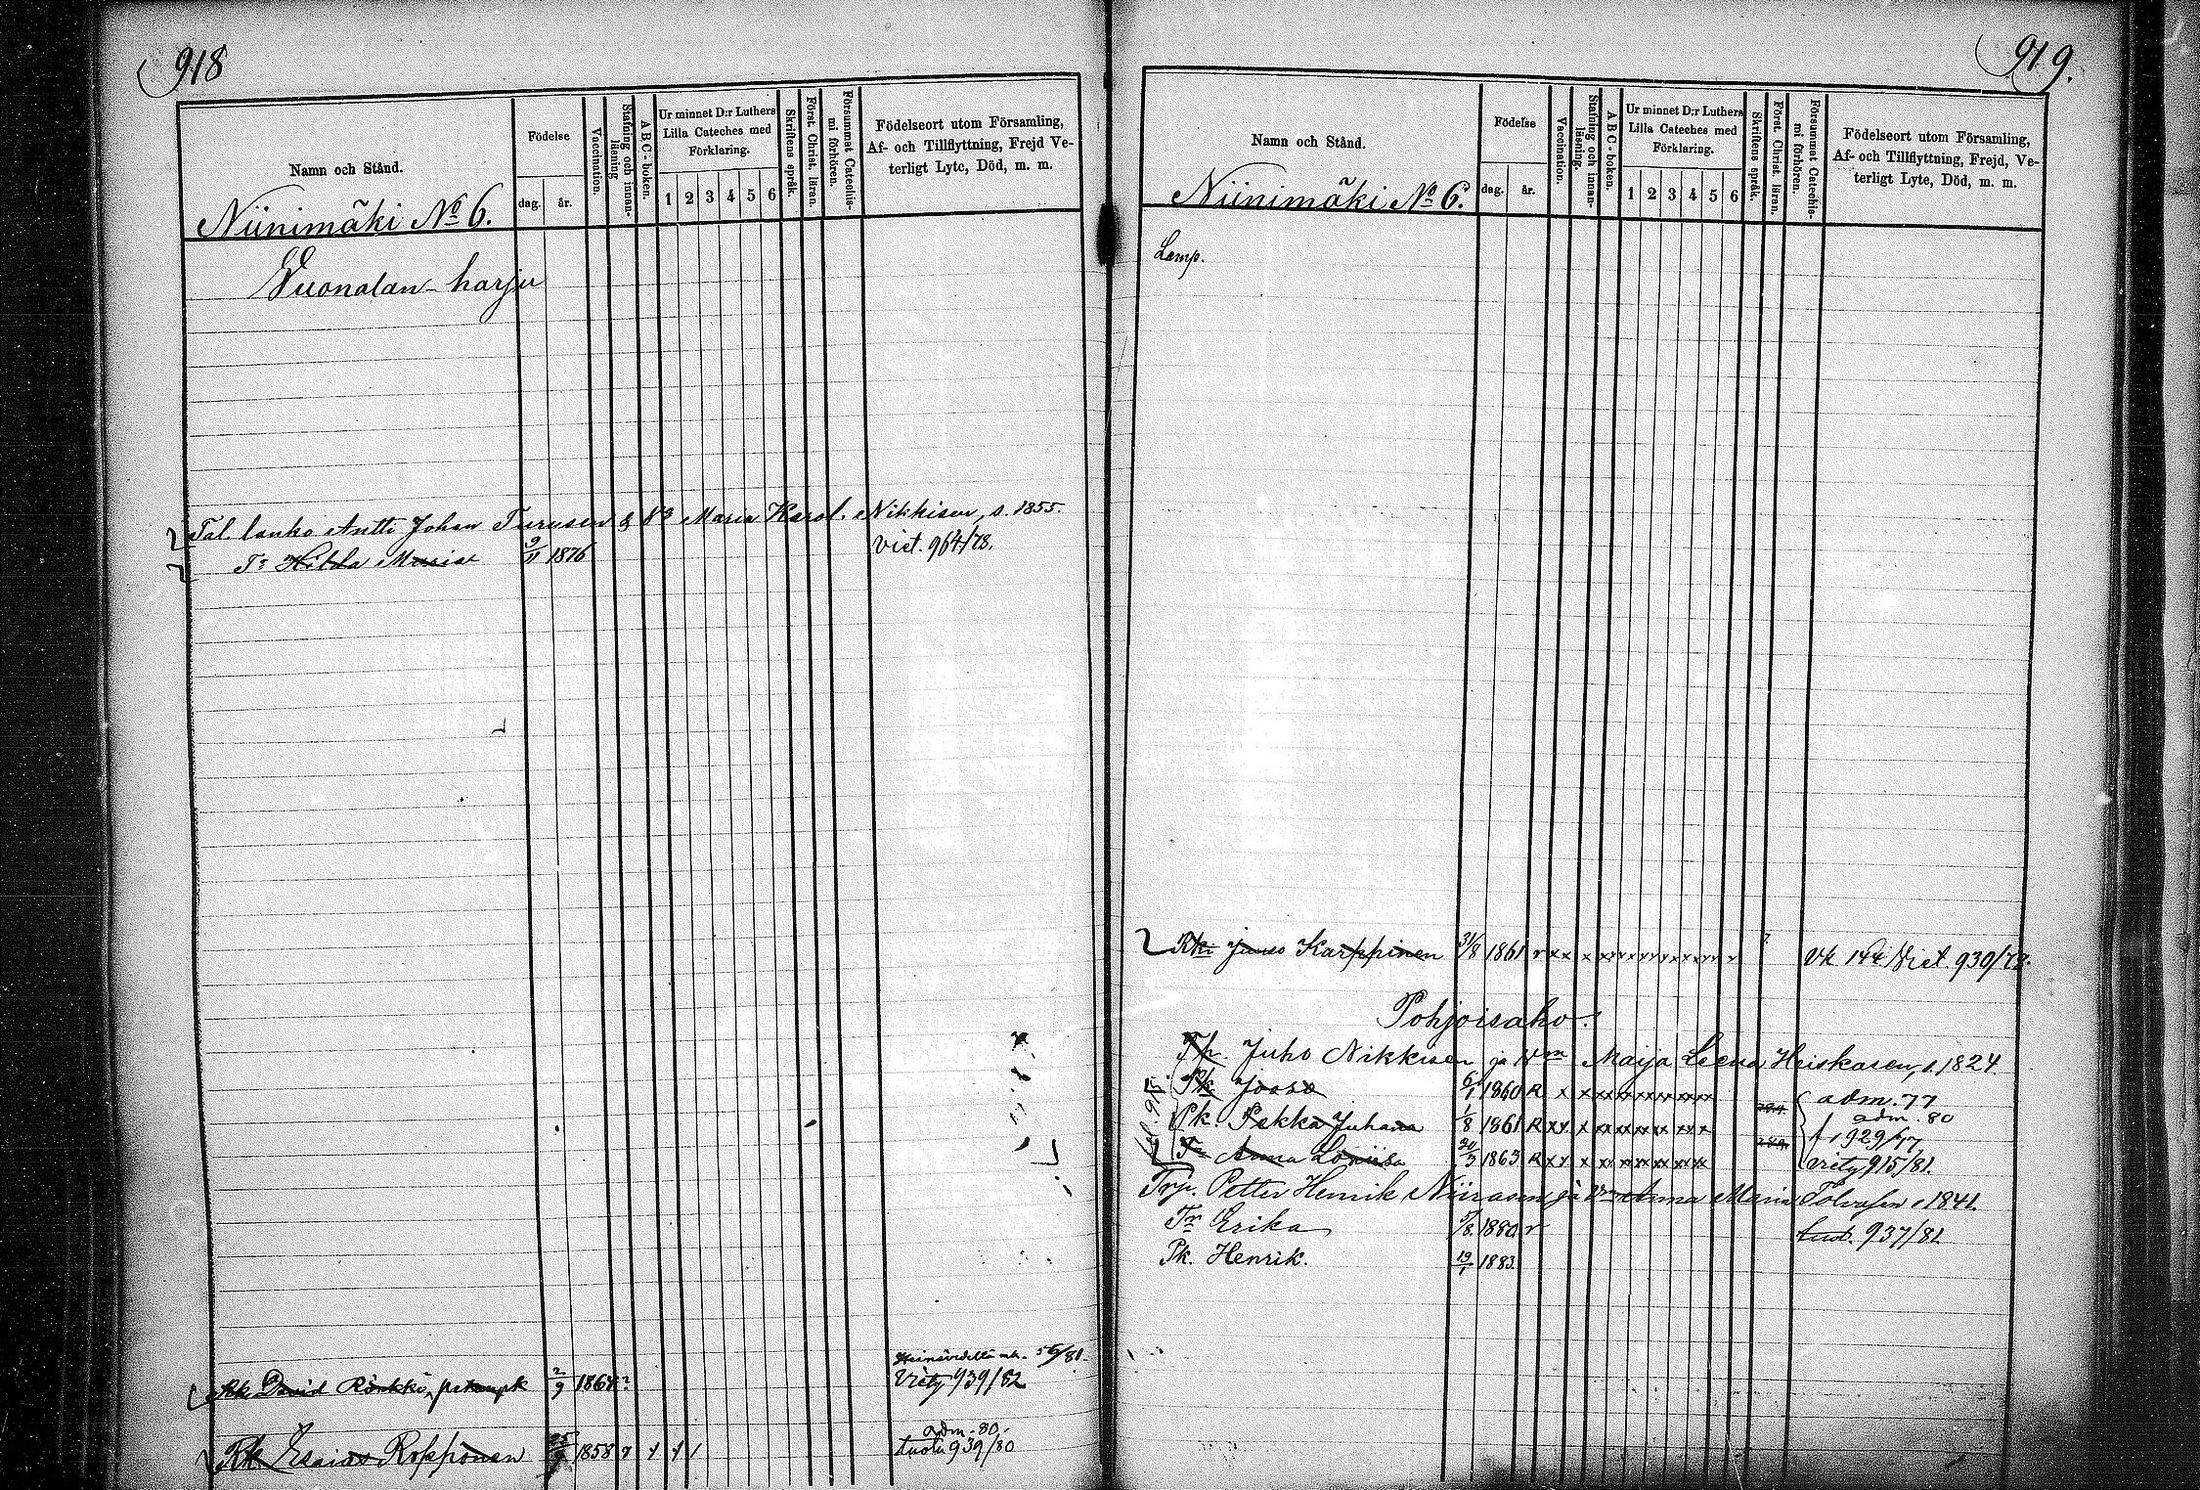 918
Namn och Stånd.
Födelse
dag.
år.
Vaccination.
Stafning och innan-
läsning
A B C-boken.
Ur minnet D:r Luthers
Lilla Cateches med
Förklaring.
1 2 3 4 5 6
Skriftens språk.
Först. Christ. läran.
Försummat Catechis-
mi förhören.
Födelseort utom Församling,
Af- och Tillflyttning, Frejd Ve-
terligt Lyte, Död, m. m.
Niinimäki No 6.
Vuonalan-harju
Tal. lanko Antti Johan Turusen & Maria Karol. Nikkisen, s. 1855.
Tr Hilda Maria 9/11 1876 vict. 964/78.
56/81.
David Rönkkö 2/9 1864? Viety 939/82
adm. 80.
Rk Esaias Ropponen 25/9 1858 tuotu 939/80
919.
Namn och Stånd.
Födelse
dag.
år.
Vaccination.
Stafning och innan-
läsning.
A B C-boken.
Ur minnet D:r Luthers
Lilla Cateches med
Förklaring.
1 2 3 4 5 6
Skriftens språk.
Först. Christ. läran.
Försummat Catechis-
mi förhören.
Födelseort utom Församling,
Af- och Tillflyttning, Frejd, Ve-
terligt Lyte, Död, m. m.
Niinimäki No 6.
Lamp.
Rk Karppinen 31/8 1861 Viet. 930/78.
Pohjoisaho.
Tp. Juho Nikkisen ja Vm Maija Leena Heiskasen, s. 1824.
Pk 6/1 1860 R x x adm. 77
Pk. Pekka Juhana 1/8 1861 R xx x adm. 80
929/77
Tr Anna Loviisa 24/3 1863 R xx x viety 915/81.
Trp. Petter Henrik Niirasen ja Vm Anna Maria Tolvasen s. 1841.
Tr Erika 5/8 1880 r tuot. 937/81
Pk. Henrik. 19/1 1883.